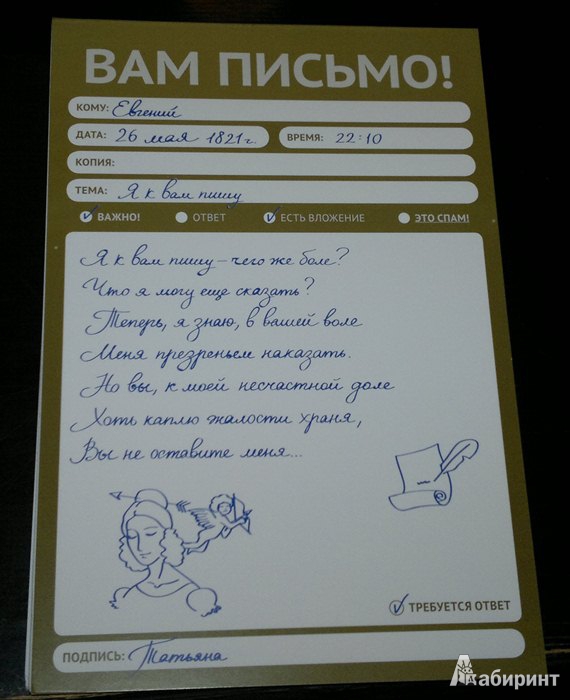 ВАМ ПИСЬМО!
КОМУ: Евгений
ДАТА: 26 мая 1821 г. ВРЕМЯ: 22:10
КОПИЯ:
ТЕМА: Я к вам пишу
ВАЖНО! ОТВЕТ ЕСТЬ ВЛОЖЕНИЕ ЭТО СПАМ!
Я к вам пишу – чего же боле?
Что я могу еще сказать?
Теперь, я знаю, в вашей воле
Меня презреньем наказать.
Но вы, к моей несчастной доле
Хоть каплю жалости храня,
Вы не оставите меня...
ТРЕБУЕТСЯ ОТВЕТ
ПОДПИСЬ: Татьяна
Лабиринт